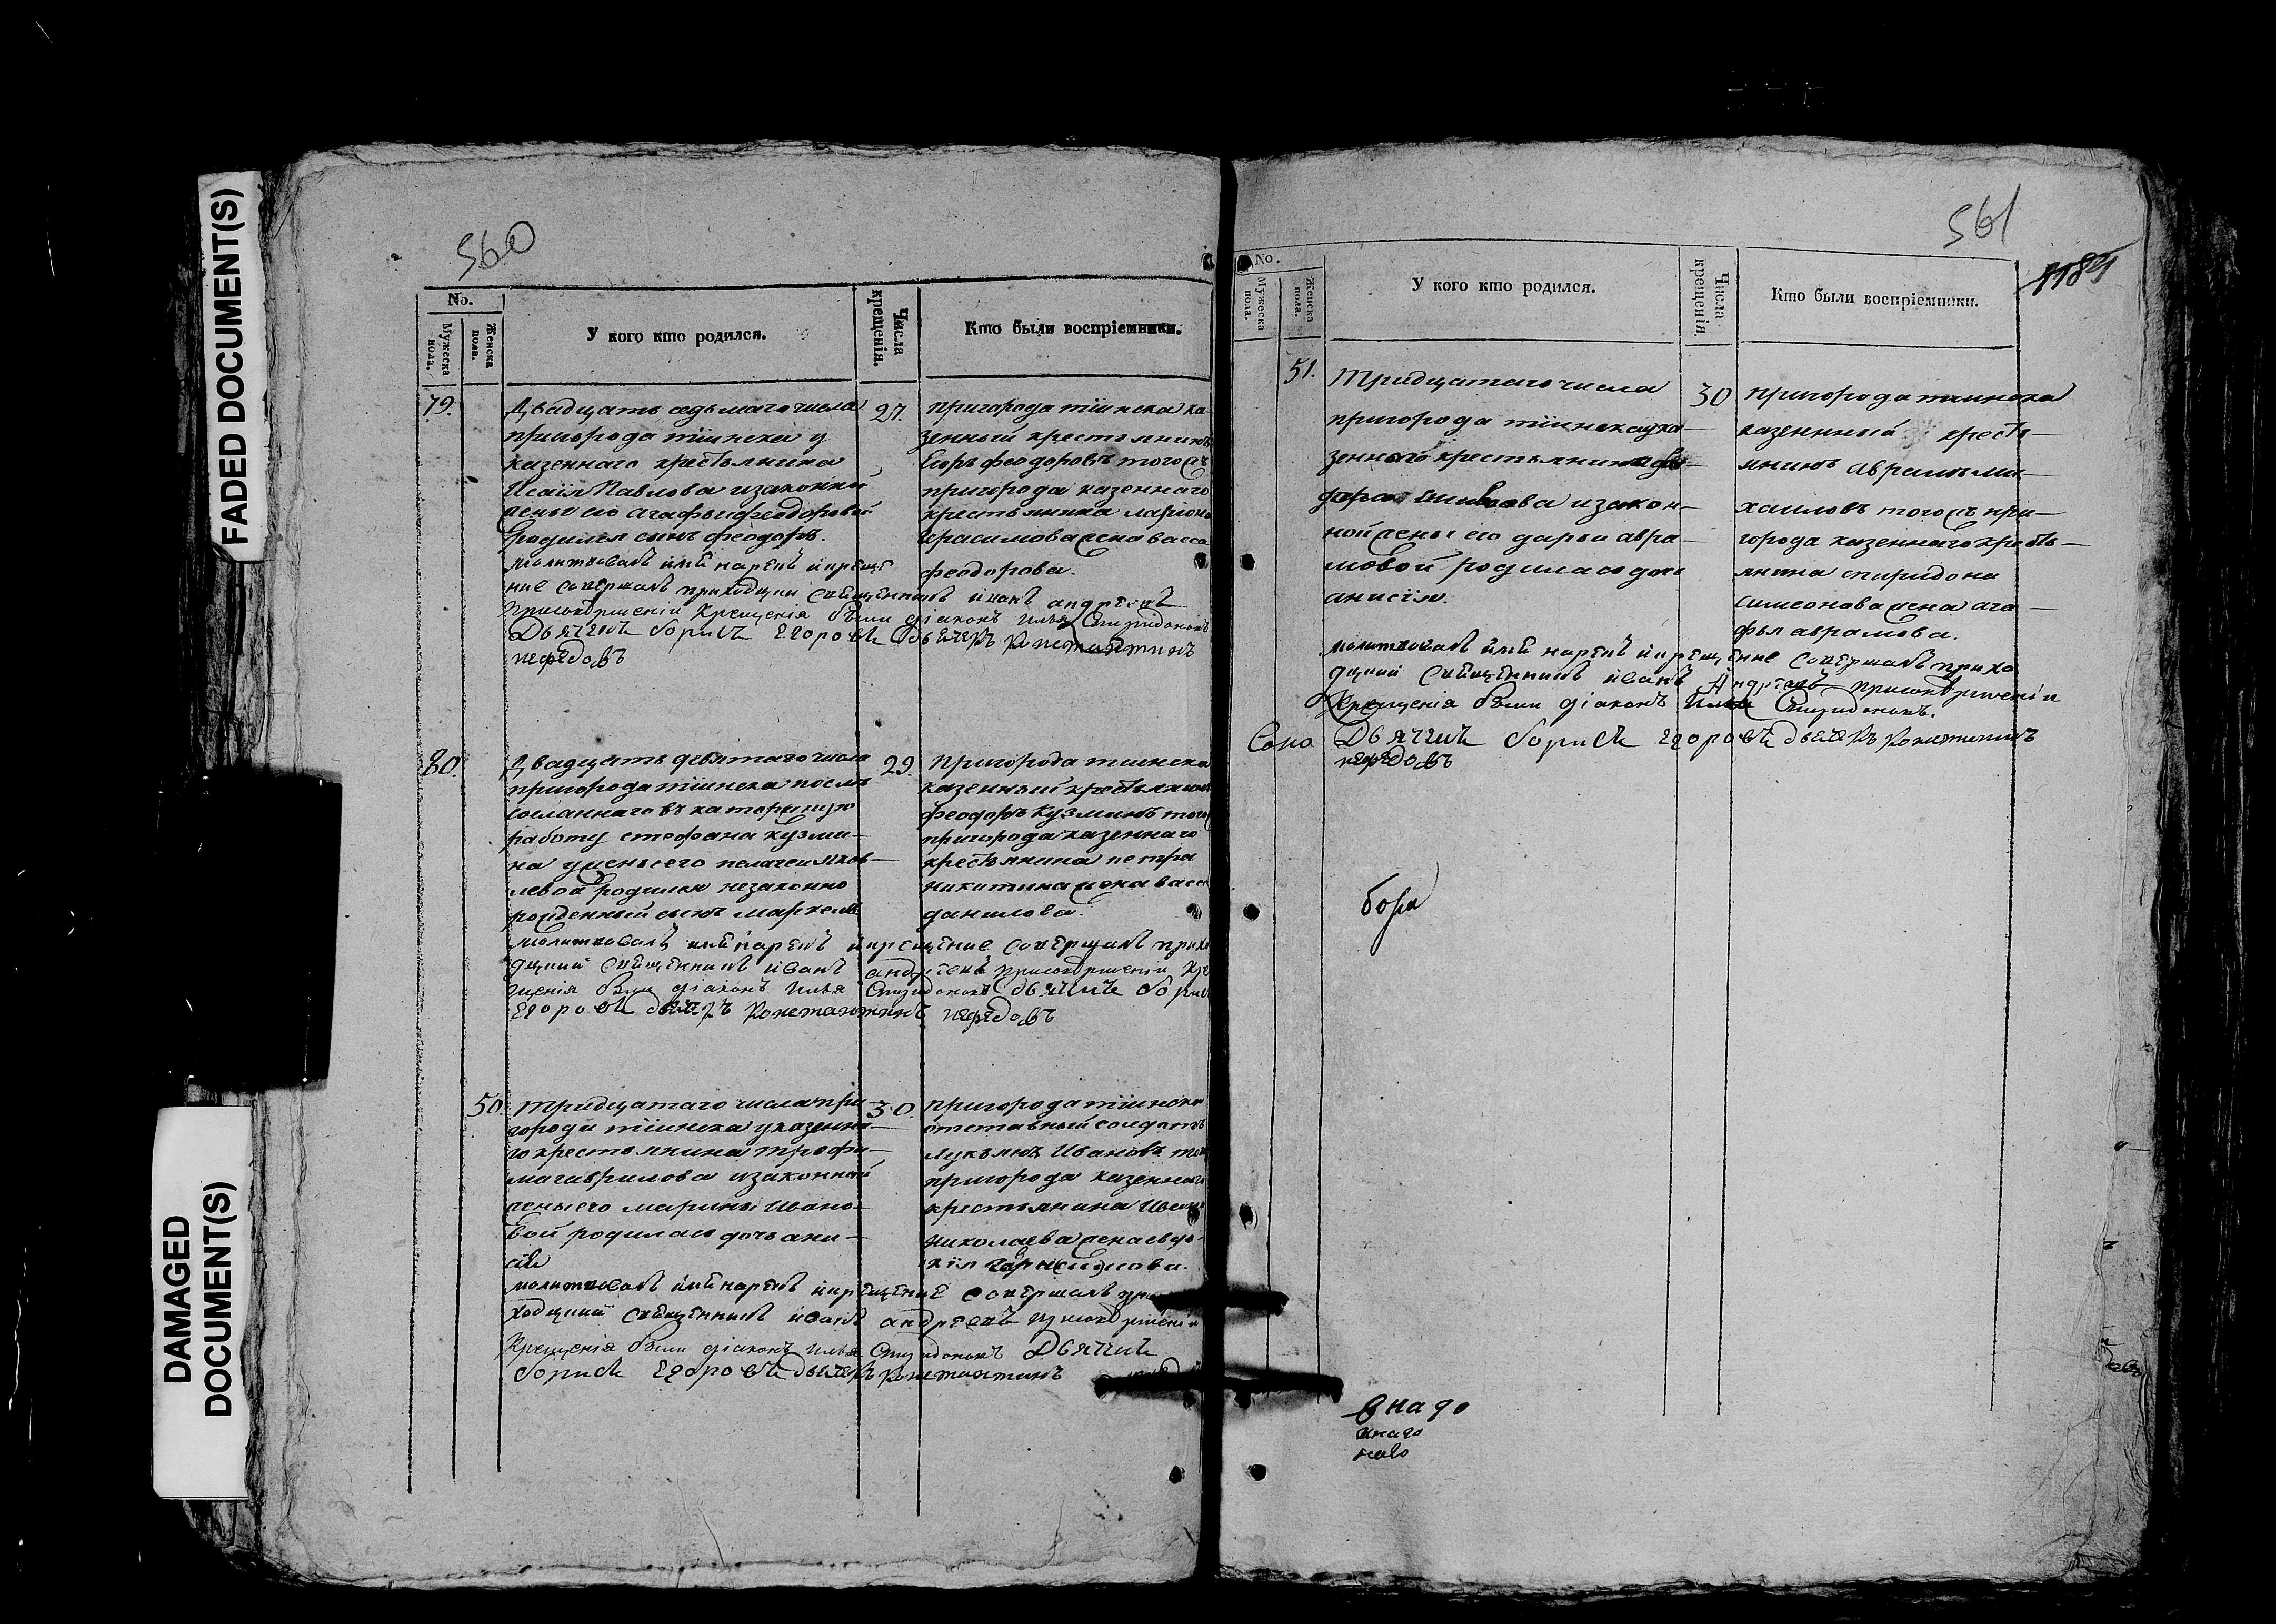 FADED DOCUMENT(S)
DAMAGED
DOCUMENT(S)
560
No.
Мужеска пола.
Женска пола.
У кого кто родился.
Числа крещенія.
Кто были воспріемники.
79.
Двадцать седьмаго числа
пригорода тіинска у
казеннаго крестьянина
Исаія Павлова и законной
жены его агафьи феодоровой
родился сынъ феодоръ.
27.
пригорода тіинска ка-
зенный крестьянинъ
Егоръ феодоровъ тогожъ
пригорода казеннаго
крестьянина лариона
герасимова жена васса
феодорова.
молитвовалъ имя нарекъ и креще
ние совершалъ приходцкий священникъ иванъ андреевъ
присовершении крещенія были діаконъ Илья Спиридоновъ
Дьячикъ борисъ егоровъ дьячекъ константинъ
нефедовъ
80.
Двадцать девятаго числа
пригорода тіинска после
сосланнаго въ каторжную
работу стефана кузми-
на у жены его пелагеи яков-
левой родился незаконно
рожденный сынъ маркелъ
29.
Пригорода тіинска
казенный крестьянинъ
феодоръ кузминъ того
пригорода казеннаго
крестьянина петра
никитина жена васса
данилова.
молитвовалъ имя нарекъ и крещение совершалъ прихо
дцкий священникъ иванъ андреевъ присовершении кре
щенія были діаконъ Илья Спиридоновъ дьячикъ бори
егоровъ дьячекъ константинъ нефедовъ
50.
тридцатаго числа при-
города тіинска у казенна-
го крестьянина трофи-
ма гаврилова и законной
жены его марины ивано-
вой родилась дочь ани-
сія
30.
пригорода тіинска
отставный солдатъ
лукьянъ Ивановъ того
пригорода казеннаго
крестьянина Ивана
николаева жена евдо-
кія
молитвовалъ имя нарекъ и крещение совершалъ при
ходцкий священникъ иванъ андреевъ присовершении
крещенія были діаконъ Илья Спиридоновъ Дьячикъ
борисъ егоровъ дьячекъ константинъ
561
No.
Мужеска пола.
Женска пола.
У кого кто родился.
Числа крещенія.
Кто были воспріемники.
51.
Тридцатаго числа
пригорода тіинска у ка-
зеннаго крестьянина
и закон-
ной жены его дарьи авра-
мовой родилась дочь
анисія.
30
пригорода тіинска
казенный кресть-
янинъ аврамъ ми-
хаиловъ тогожъ при-
города казеннаго кресть-
янина спиридона
симеонова жена ага-
фья аврамова.
молитвовалъ имя нарекъ и крещение совершалъ прихо
дцкий священникъ иванъ Андреевъ присовершении
Крещенія были діаконъ Илья Спиридоновъ.
Дьячикъ борисъ егоровъ дьячекъ констентинъ
нефедовъ